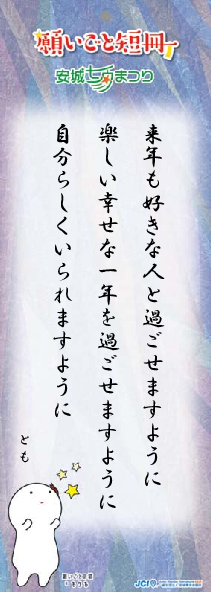 願いごと短冊
安城七夕まつり
来年も好きな人と過ごせますように
楽しい幸せな一年を過ごせますように
自分らしくいられますように
とも
JCI